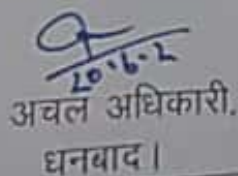 20.6.2
अचल अधिकारी.
धनबाद।